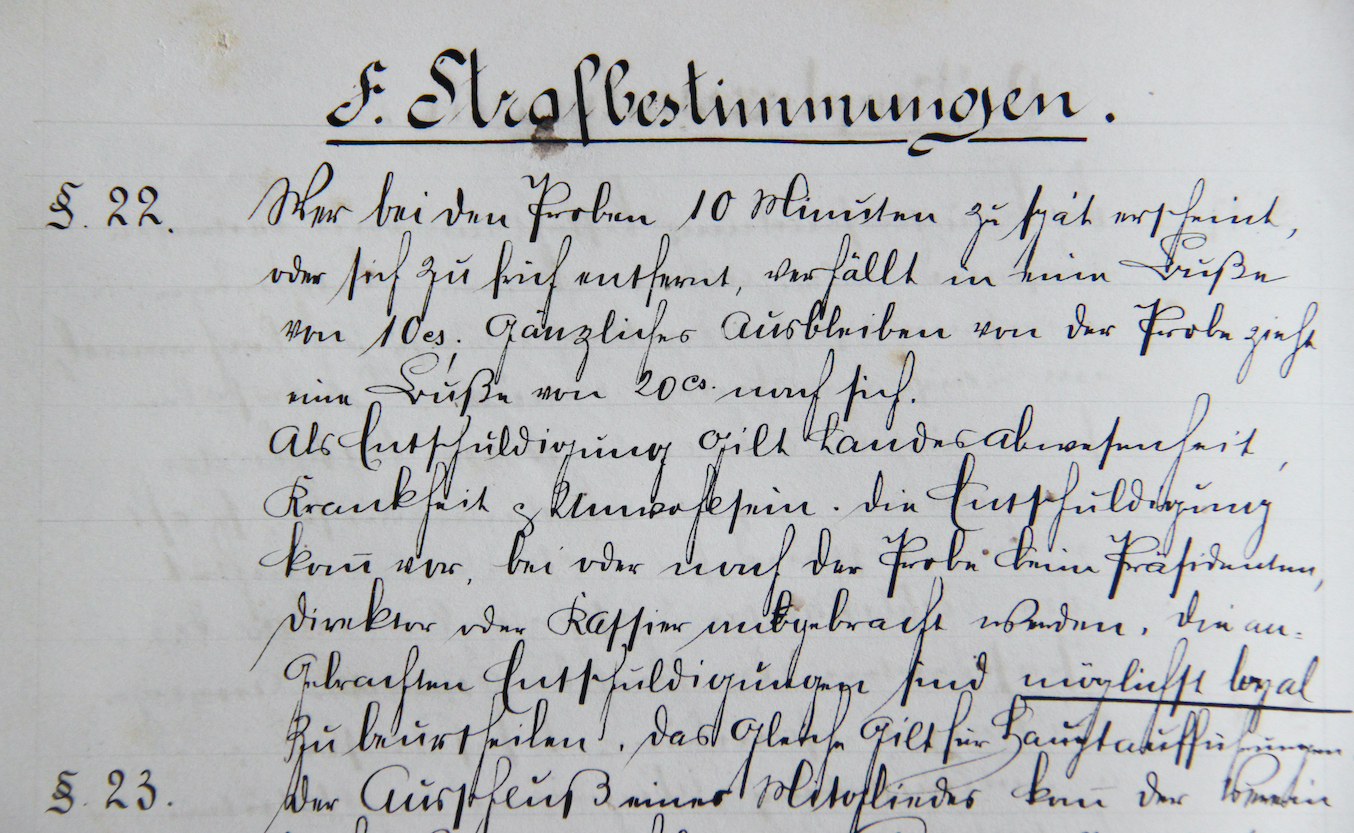 F. Strafbestimmungen.
§. 22. Wer bei den Proben 10 Minuten zu spät erscheint,
oder sich zu früh entfernt, verfällt in eine Buße
von 10 cs. Gänzliches Ausbleiben von der Probe zieht
eine Buße von 20 cs. nach sich.
Als Entschuldigung gilt Landesabwesenheit,
Krankheit & Unwohlsein. Die Entschuldigung
kan̄ vor, bei oder nach der Probe beim Präsidenten,
Direktor oder Kassier angebracht werden. Die an=
gebrachten Entschuldigungen sind möglichst loyal
zu beurtheilen. Das Gleiche gilt für Hauptaufführungen
§. 23. Der Ausschluß eines Mitgliedes kan̄ der Verein